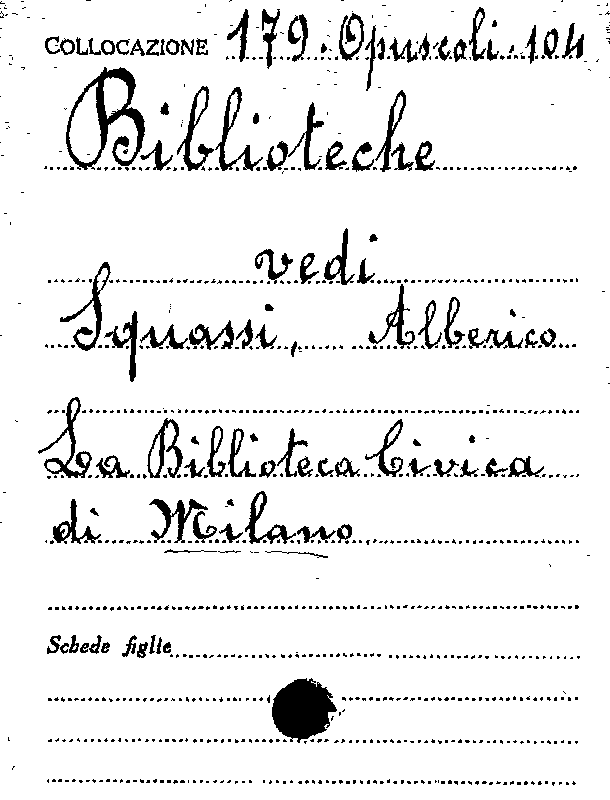 COLLOCAZIONE 179. Opuscoli. 104
Biblioteche
vedi
Squassi, Alberico
La Biblioteca Civica
di Milano
Schede figlie